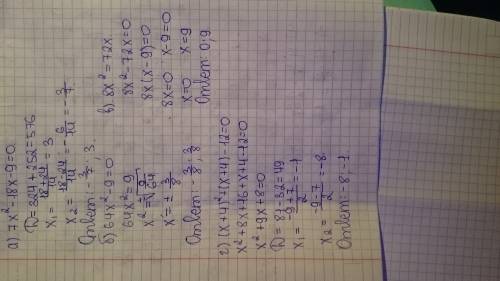 а) 7x²-18x-9=0.
D=324+252=576
x₁= 18+24/14 = 3
x₂= 18-24/14 = -6/14 = -3/7
Ответ: -3/7; 3.
б) 64x²-9=0
64x²=9
x²=√9/64
x=± 3/8
Ответ: -3/8; 3/8
в) 8x²=72x
8x²-72x=0
8x(x-9)=0
8x=0 x-9=0
x=0 x=9
Ответ: 0; 9
г) (x+4)²+(x+4)-12=0
x²+8x+16+x+4-12=0
x²+9x+8=0
D=81-32=49
x₁= -9+7/2 = -1
x₂= -9-7/2 = -8.
Ответ: -8; -1.